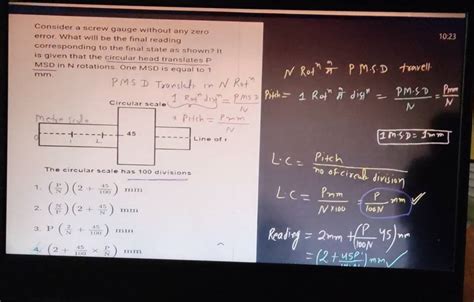 Consider a screw gauge without any zero
error. What will be the final reading
corresponding to the final state as shown? It
is given that the circular head translates P
MSD in N rotations. One MSD is equal to 1
mm.
P M S D Translat in N Rotⁿ
1 Rotⁿ distⁿ = PMSD/N
Pitch = Pmm/N
Circular scale
45
Line of r
The circular scale has 100 divisions
1. (P/N)(2 + 45/100) mm
2. (N/P)(2 + 45/100) mm
3. P(2/N + 45/100) mm
4. (2 + 45/100 × P/N) mm
10:23
N Rotⁿ में P M.S.D travell
Pitch = 1 Rotⁿ में distⁿ = PMSD/N = Pmm/N
1 M S D = 1mm
L.C = Pitch/no of circular division
L.C = Pmm/N×100 = P/100N mm
Reading = 2mm + (P/100N 45) mm
= (2 + 45P